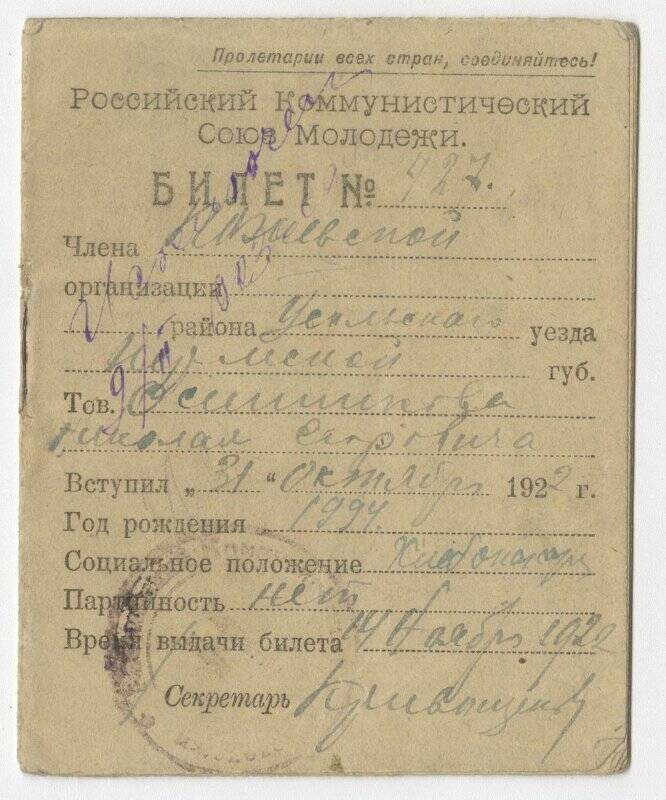 Пролетарии всех стран, соединяйтесь!
Российский Коммунистический
Союз Молодежи.
БИЛЕТ № 427.
Члена
организации
района Усольского уезда
Пермской губ.
Тов.
Николая Егоровича
Вступил „31“ Октября 1922 г.
Год рождения
Социальное положение Хлебопашец
Партийность нет
Время выдачи билета 14 Ноября 1922
Секретарь Кривощеков